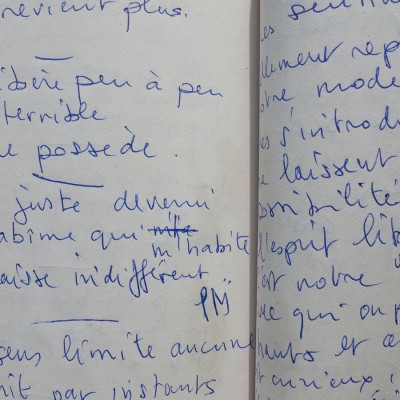 revient plus.
libère peu à peu
terrible
e possède.
juste devenu
abîme qui m'habite
laisse indifférent
PM
sens limite aucune
nit par instants
es sentim
llement rep
otre mode
es s'introdu
e laissent
ossibilité
l'esprit lib
est notre
qui on p
ments et
t curieux